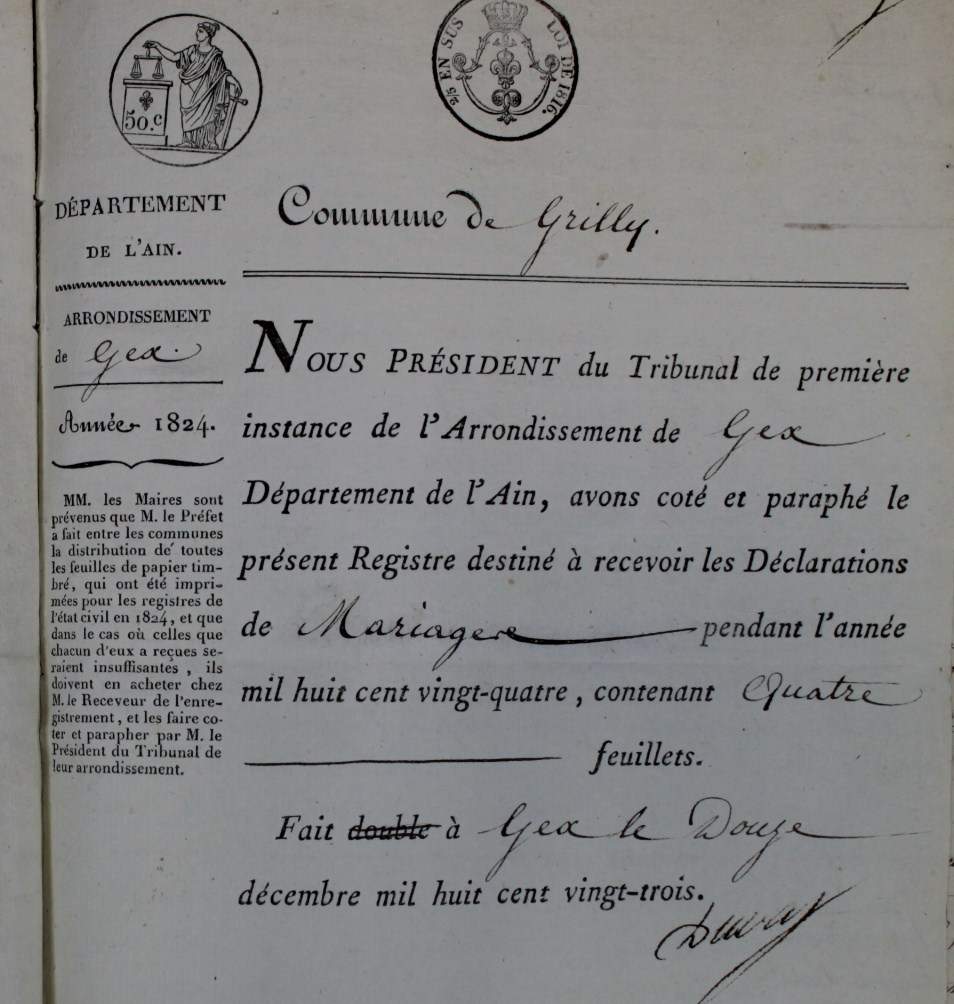 50.c
2/5 EN SUS LOI DE 1816.
DÉPARTEMENT
DE L'AIN.
ARRONDISSEMENT
de Gex.
Année 1824.
MM. les Maires sont
prévenus que M. le Préfet
a fait entre les communes
la distribution de toutes
les feuilles de papier tim-
bré, qui ont été impri-
mées pour les registres de
l'état civil en 1824, et que
dans le cas où celles que
chacun d'eux a reçues se-
raient insuffisantes, ils
doivent en acheter chez
M. le Receveur de l'enre-
gistrement, et les faire co-
ter et parapher par M. le
Président du Tribunal de
leur arrondissement.
Commune de Grilly.
NOUS PRÉSIDENT du Tribunal de première
instance de l'Arrondissement de Gex
Département de l'Ain, avons coté et paraphé le
présent Registre destiné à recevoir les Déclarations
de Mariages pendant l'année
mil huit cent vingt-quatre, contenant Quatre
feuillets.
Fait double à Gex le Douze
décembre mil huit cent vingt-trois.